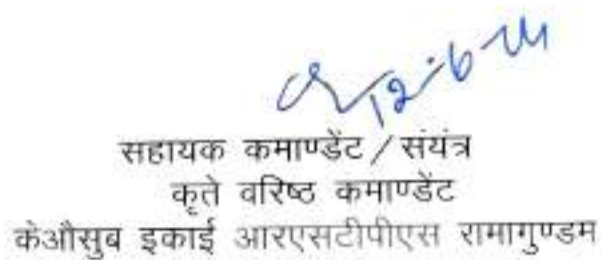 12.6.24
सहायक कमाण्डेंट / संयंत्र
कृते वरिष्ठ कमाण्डेंट
केऔसुब इकाई आरएसटीपीएस रामागुण्डम